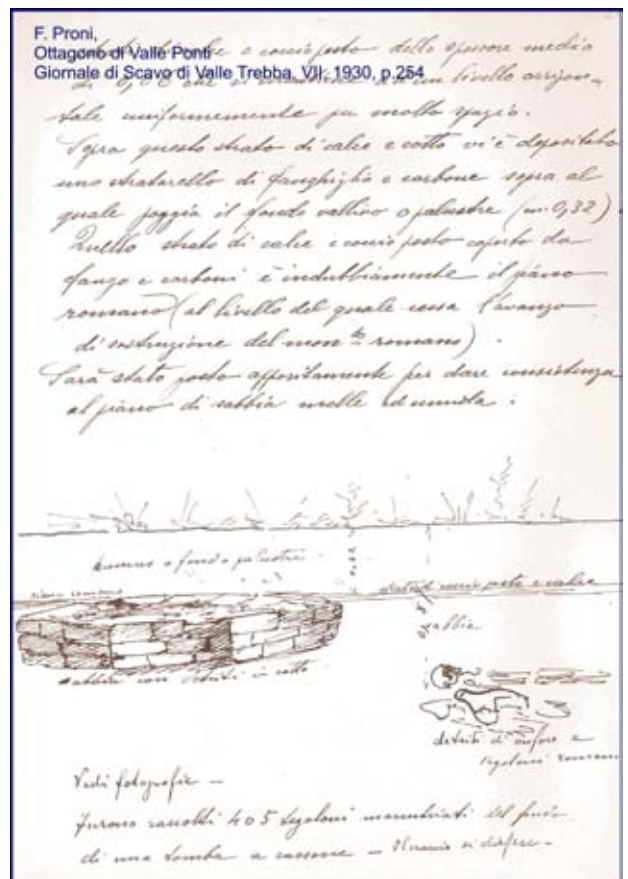 F. Proni,
Ottagono di Valle Ponti
Giornale di Scavo di Valle Trebba, VII, 1930, p.254
calce e coccio pesto dello spessore medio
di 0,08 che si mantiene ad un livello orizzon-
tale uniformemente per molto spazio.
Sopra questo strato di calce e cotto vi è depositato
uno straterello di fanghiglia e carbone sopra al
quale poggia il fondo vallivo o palustre (m. 0,32)
Quello strato di calce e coccio pesto coperto da
fango e carboni è indubbiamente il piano
romano (al livello del quale cessa l'avanzo
di sostruzione del mon.to romano)
Sarà stato posto appositamente per dare consistenza
al piano di sabbia molle ed umida.
humus o fondo palustre
0,32
piano romano
strato di coccio pesto e calce
sabbia
sabbia con detriti di cotto
detriti d'anfore e
tegoloni romani
Vedi fotografie —
Furono raccolti 405 tegoloni manubriati del fondo
di una tomba a cassone — Il cranio si disfece —